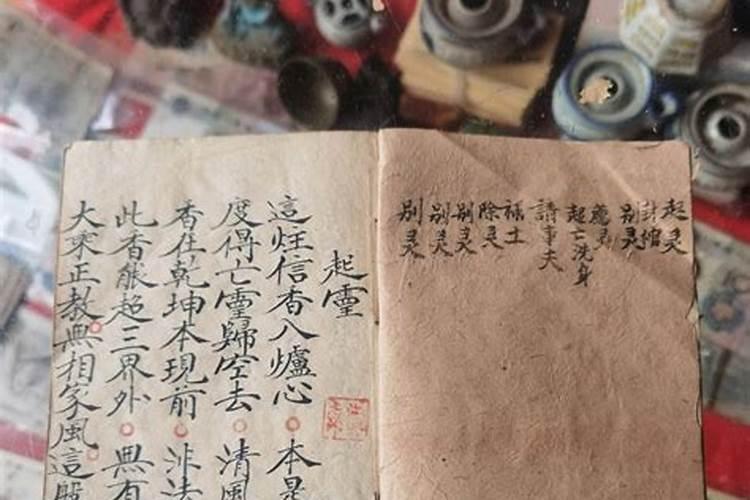 起灵
封棺
别灵
起亡洗身
請事夫
除灵
别灵
别灵
别灵
起靈
這炷信香入爐心 本是
度得亡靈歸空去 清風
香在乾坤本現前 非法
此香能超三界外 無有
大乘正教無相家風這